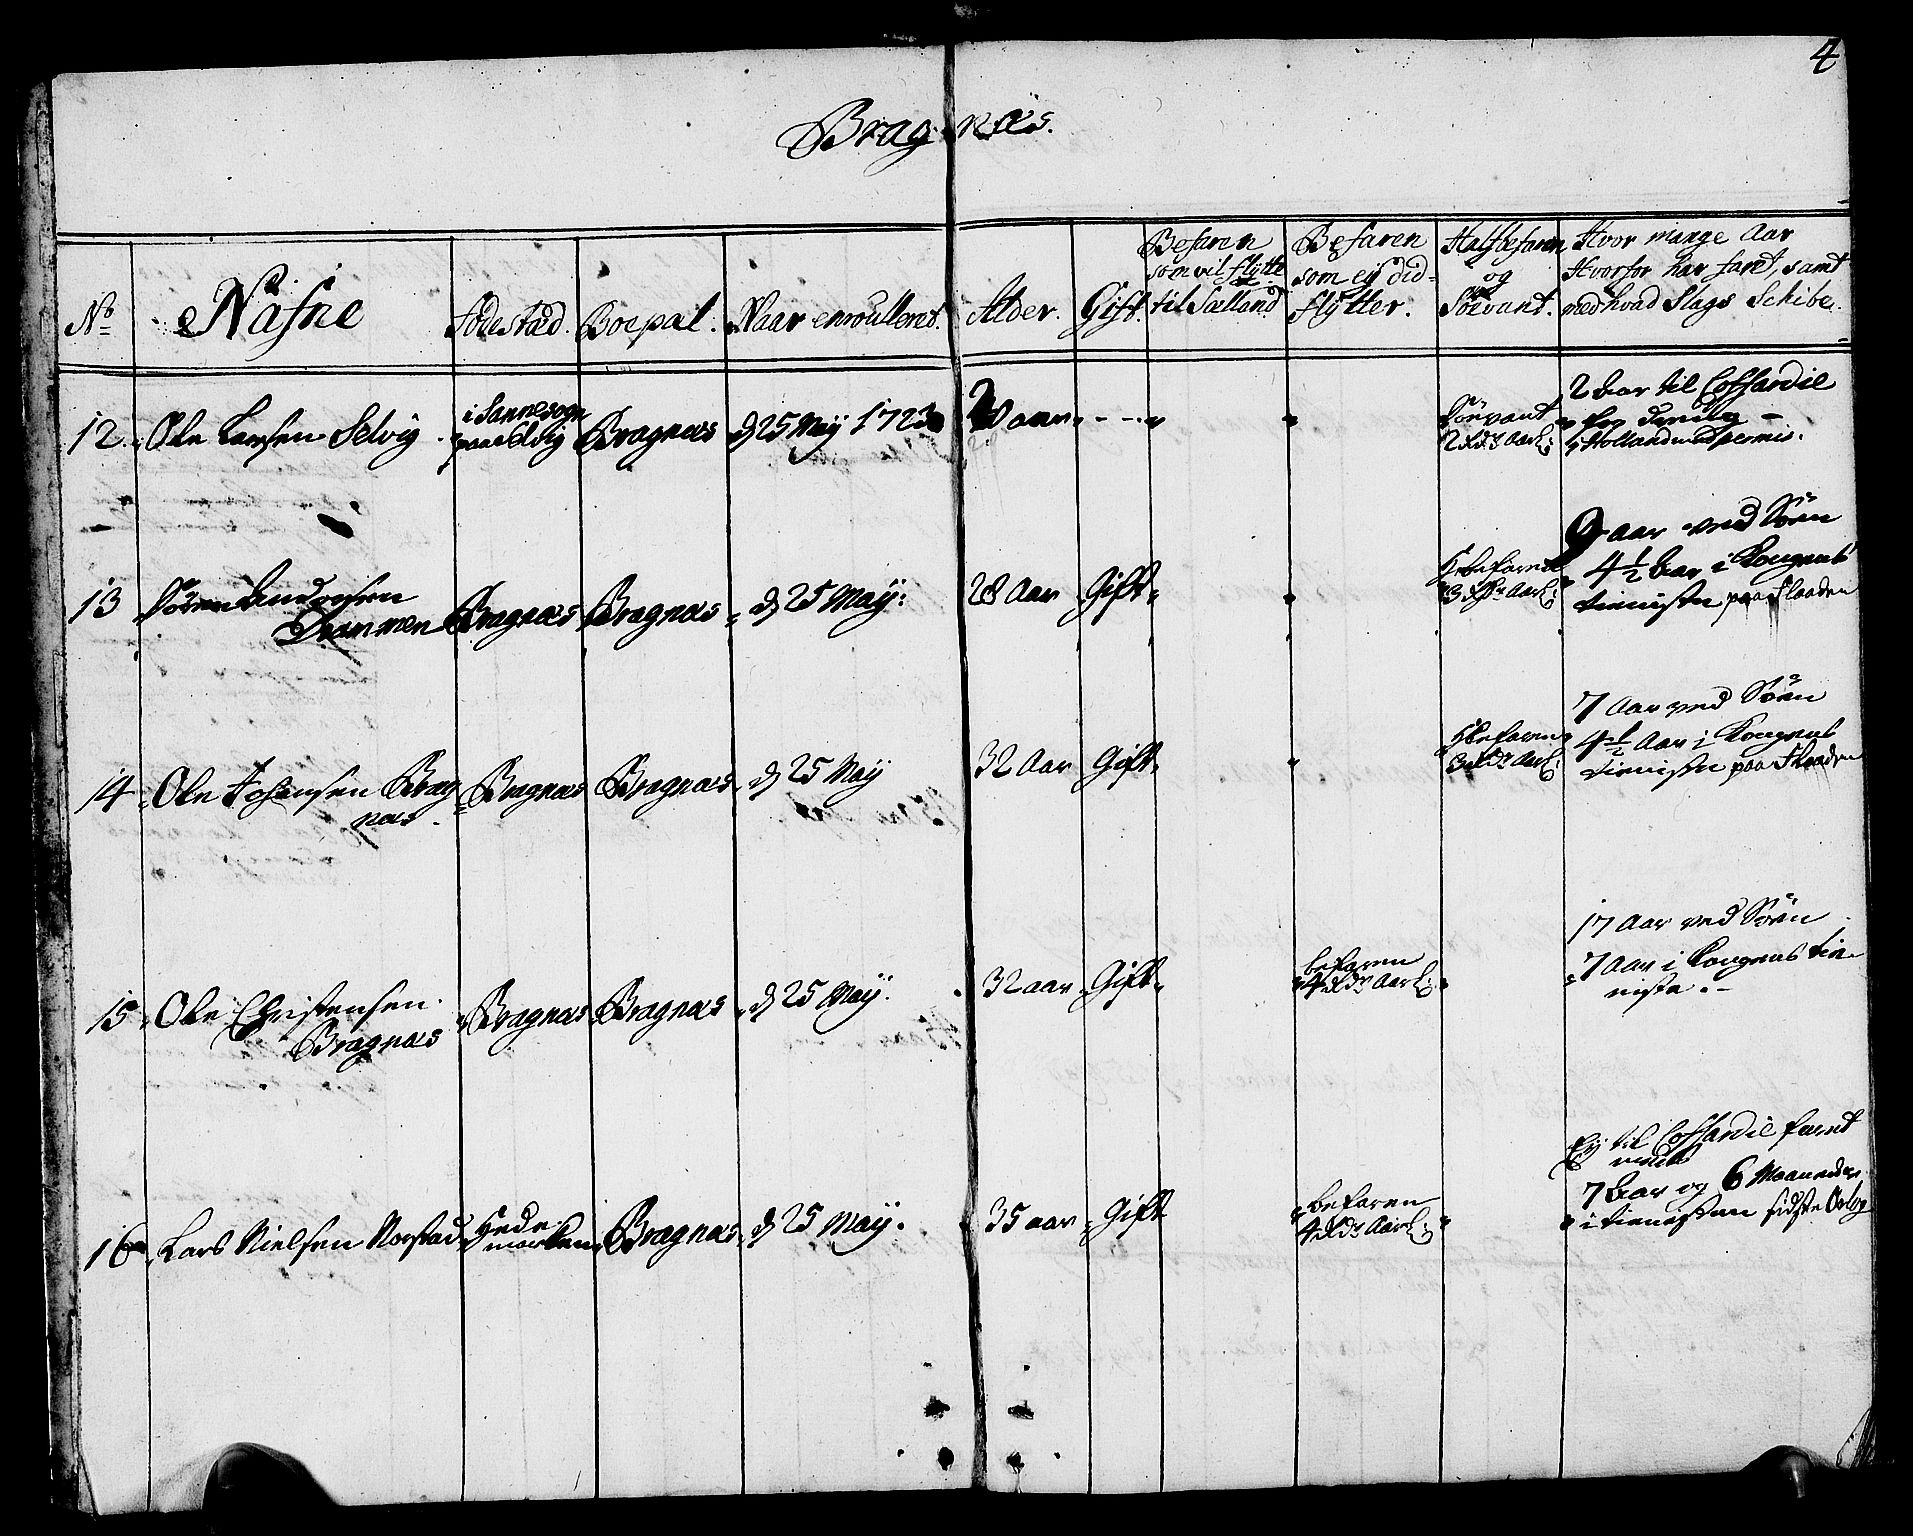 4
Bragnæs.
No
Nafne
Födestæd.
Boepæl.
Naar enroulleret.
Alder.
Gift.
Befaren
som vil flÿtte
til Sælland
Befaren
som eÿ did-
flÿtter.
Halfbefaren
og
Söevant.
Hvor mange Aar
Hvorfor har faret, samt
med hvad Slags Schibe
12. Ole Larsen Selvig
i Sannesogn
paa Selvig
Bragnæs
d 25 Maÿ 1723
aar
Söevant
2 Rdr Aarl:
2 Aar til Coffardie
Holland med permis.
13 Sören Andersen
Drammen
Bragnæs
Bragnæs
d 25 Maÿ:
28 Aar
Gift
H befaren
3 Rdr Aarl:
9 aar ved Söen
4 1/2 Aar i Kongens
tienisten paa Flaaden
14. Ole Johansen Brag
næs.
Bragnæs
Bragnæs
d 25 Maÿ
32 Aar
Gift
H befaren
3 Rdr Aarl:
7 Aar ved Söen
4 1/2 Aar i Kongens
tienisten paa Flaaden
15. Ole Christensen
Bragnæs
Bragnæs
Bragnæs
d 25 Maÿ.
32 aar
Gift
befaren
4 Rdr Aarl:
17 Aar ved Söen
7 Aar i Kongens tie-
niste.
16. Lars Nielsen Norstad
Hede
marken
Bragnæs
d 25 Maÿ.
35 aar
Gift
befaren
4 Rdr Aarl:
Eÿ til Coffardie faret
mens
7 Aar og 6 Maaneder
i tienesten sidste Orlog